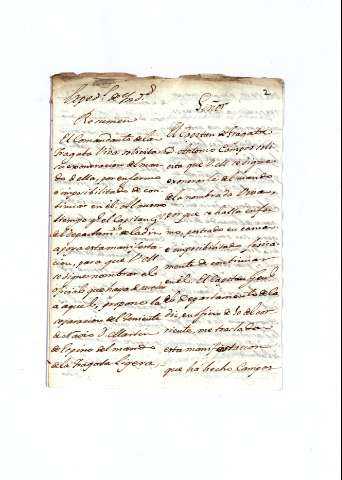 2
Señor
Resumen
El Comandante de la
Fragata Viva solicita
exoneracion del man
do de ella, por enfermo
e imposibilitado de con
tinuar en él. Al mismo
tiempo q.e el Capitan g.
del Departam.to de la
apoya esta manifesta
cion, para que V. M.
se digne nombrar el
oficial que haya de
a aquel, propone la
separacion del Teniente
de navio D.
de Espino del mando
de la Fragata ligera
El Capitan de Fragata
D. Antonio Campos soli
cita que V. M. se digne
exonerarle del mando
de la nombrada
por que se halla enfer
mo, entrado en
e imposibilitado
mente de continuar
en él. El Capitan gen.
de Departamento de la
en oficio de 30 del cor
riente, me traslada
esta manifestacion
que há hecho Campos